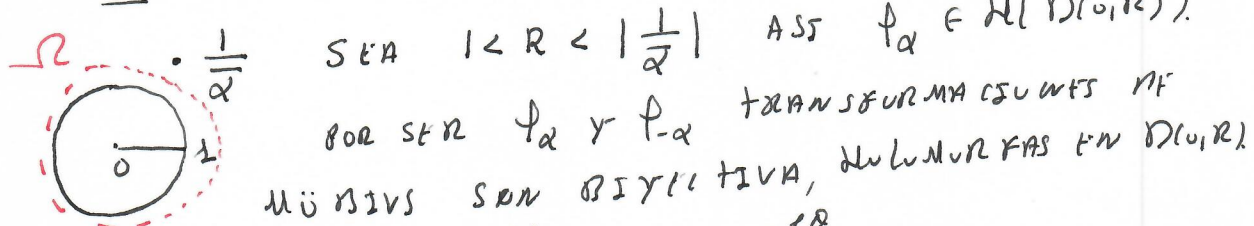 Ω · 1/ᾱ SEA 1 < R < |1/ᾱ| ASÍ φ_α ∈ H(D(0,R)).
POR SER φ_α Y φ_-α TRANSFORMACIONES DE
0 1
MÖBIUS SON BIYECTIVA, HOLOMORFAS EN D(0,R).